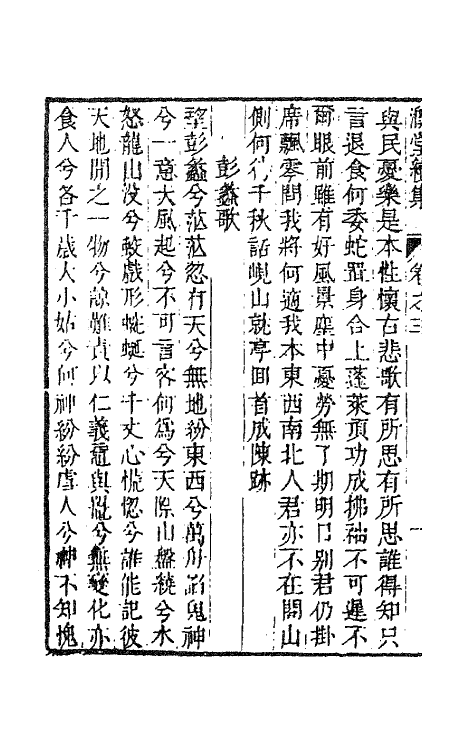 堂續集 卷之三
與民憂樂是本性懷古悲歌有所思有所思誰得知只
言退食何委蛇置身合上蓬萊頂功成拂袖不可遲不
爾眼前雖有好風景塵中憂勞無了期明日別君仍掛
席飄零問我將何適我本東西南北人君亦不在關山
側何以千秋話峴山就亭回首成陳跡
彭蠡歌
望彭蠡兮茫茫忽有天兮無地紛東西兮萬舟諂鬼神
兮一意大風起兮不可言客何為兮天際山盤繞兮水
怒龍山没兮蛟戲形蜿蜒兮千丈心慌惚兮誰能記彼
天地開之一物兮諒難責以仁義黿與鼉兮無變化亦
食人兮各千歲大小姑兮何神紛紛虐人兮神不知愧